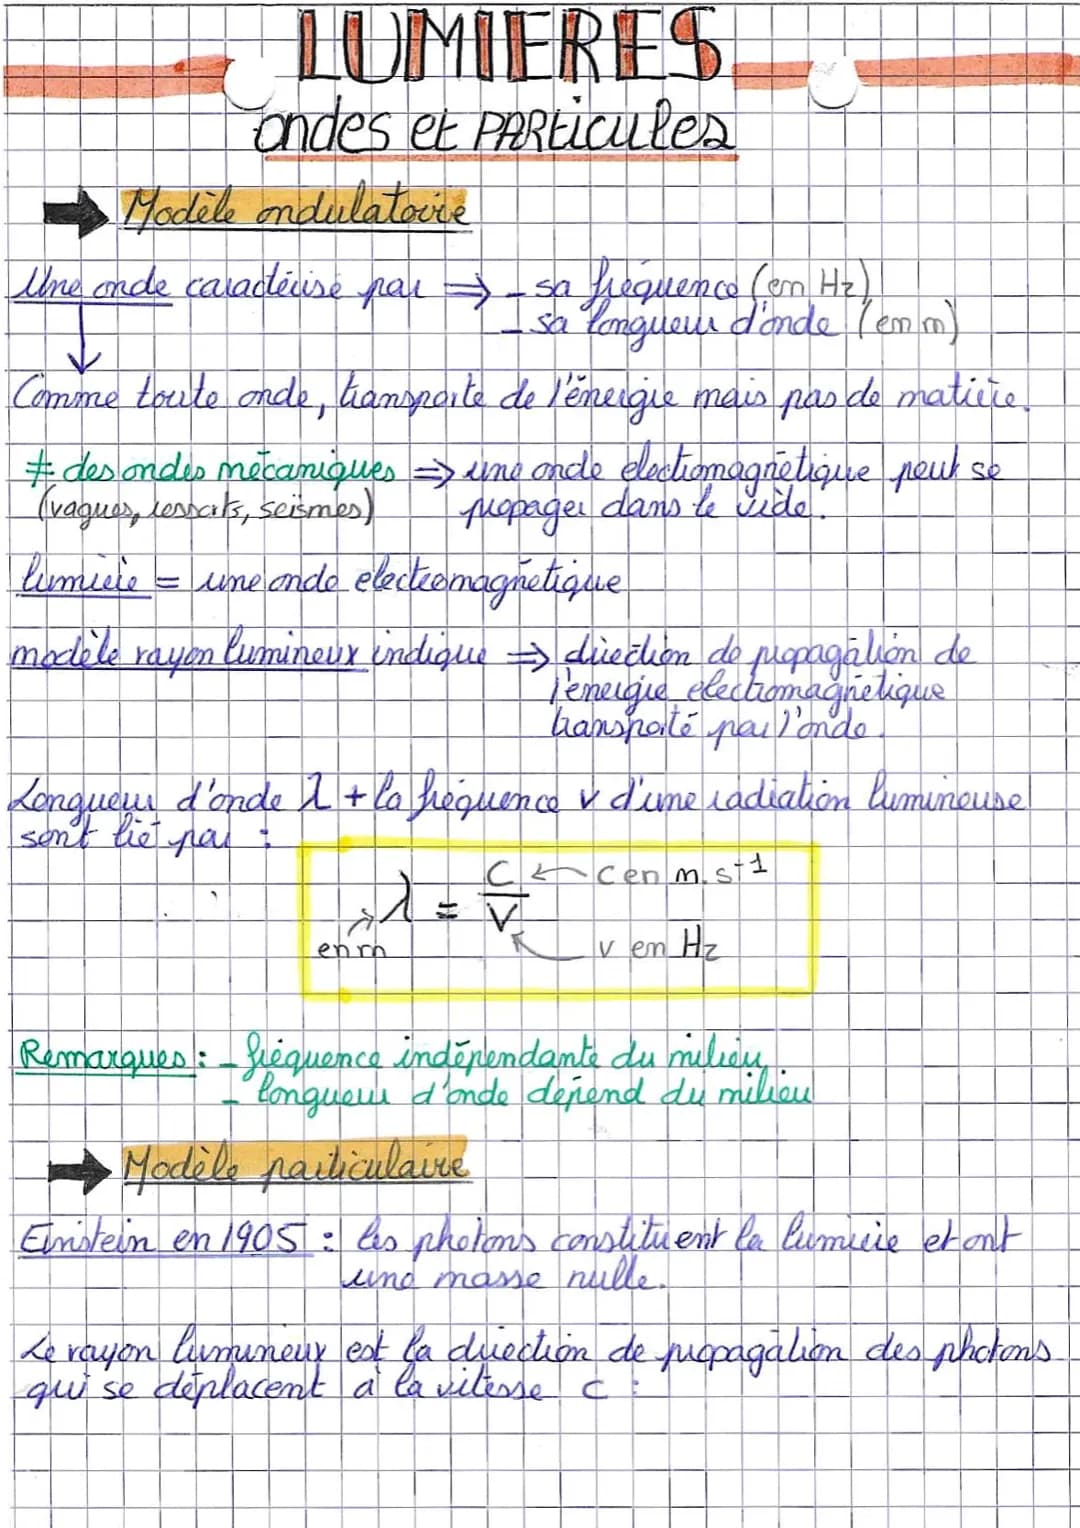 LUMIERES
ondes et PARticules
Modèle ondulatoire
Une onde caractérisé par ⇒ - sa fréquence (en Hz)
- sa longueur d'onde (en m)
Comme toute onde, transporte de l'énergie mais pas de matière.
≠ des ondes mécaniques ⇒ une onde électromagnétique peut se
(vagues, ressorts, seismes) propager dans le vide.
lumière = une onde electromagnétique
modèle rayon lumineux indique ⇒ direction de propagation de
l'énergie électromagnétique
transporté par l'onde.
Longueur d'onde λ + la fréquence ν d'une radiation lumineuse
sont lié par :
λ = c/ν ← c en m.s⁻¹
en m ν en Hz
Remarques : - fréquence indépendante du milieu
- longueur d'onde dépend du milieu
Modèle particulaire
Einstein en 1905 : les photons constituent la lumière et ont
une masse nulle.
Le rayon lumineux est la direction de propagation des photons
qui se déplacent à la vitesse c :